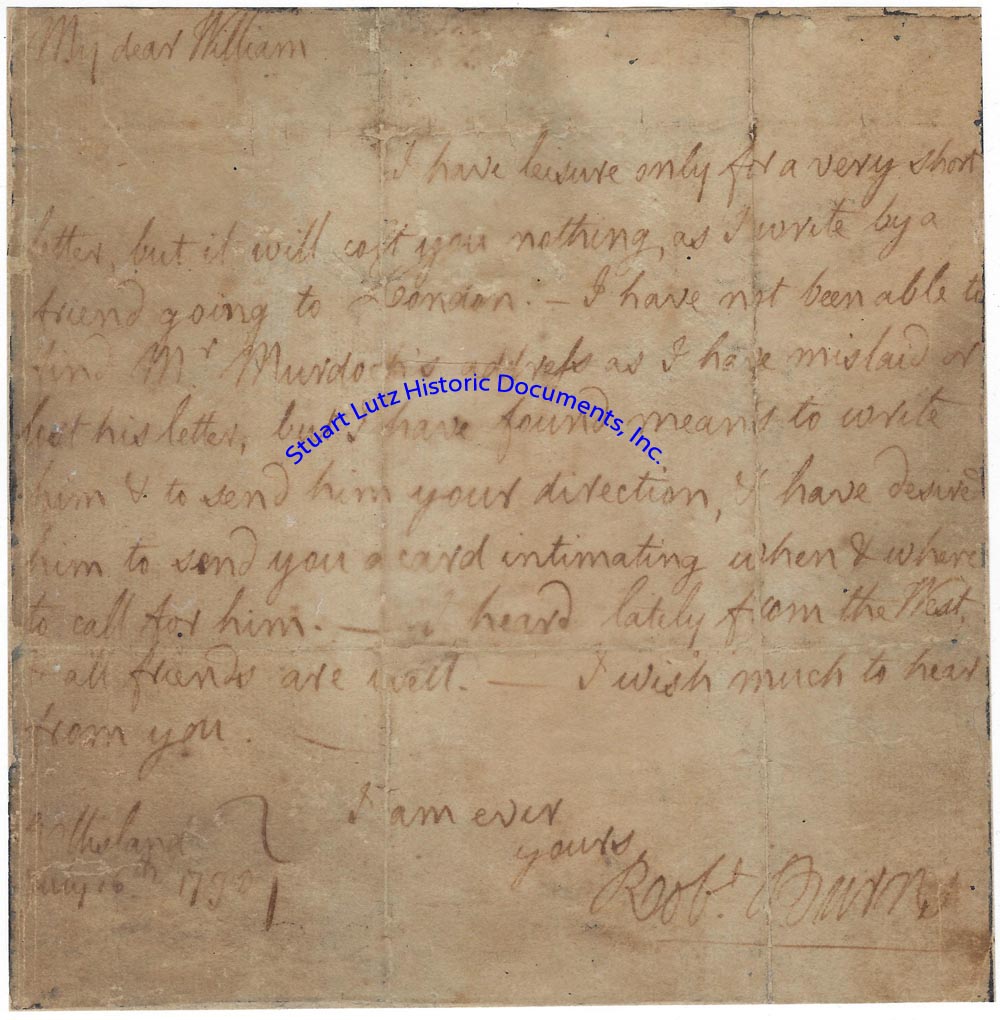 My dear William
I have leisure only for a very short
letter, but it will cost you nothing, as I write by a
friend going to London. — I have not been able to
find Mr Murdoch's address as I have mislaid or
lost his letter, but I have found means to write
him & to send him your direction, & have desired
him to send you a card intimating when & where
to call for him. — I heard lately from the West,
& all friends are well. — I wish much to hear
from you. —
I am ever
yours
Robt. Burns
Ellisland
July 16th 1790
Stuart Lutz Historic Documents, Inc.